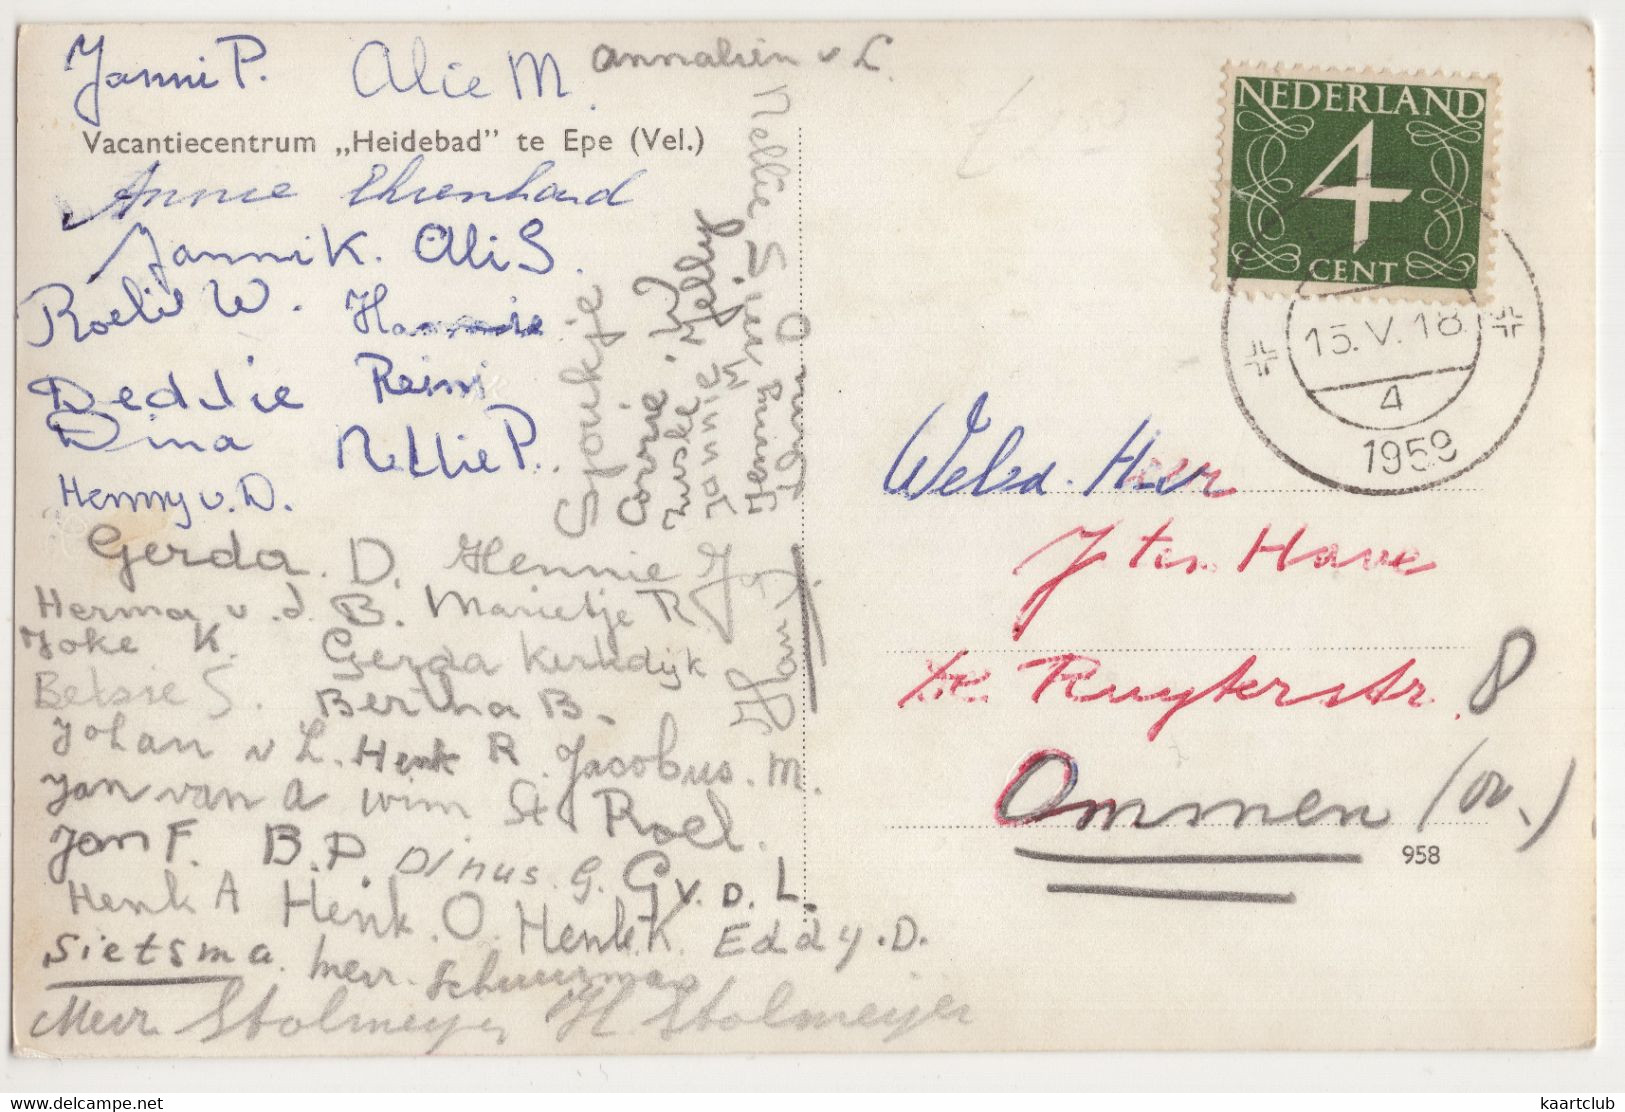 Janni P. Alie M. Annalien v L.
Vacantiecentrum „Heidebad” te Epe (Vel.)
Annie Ehrenhard
Janni K. Ali S.
Roelie W. Hannie
Deddie Reini
Dina Nellie P.
Henny v. D.
Sjoukje
Corrie W
Juske Nelly
Jannie
Hennie
Nellie S.
Gerda. D. Hennie
Herma v. d. B. Marietje R.
Joke K. Gerda Kerkdijk
Betsie S. Bertha B.
Johan v L. Henk R. Jacobus. M.
Jan van A Wim St Roel.
Jan F. B.P. Dinus. G. G v. D. L.
Henk A Henk. O. Henk K. Eddy. D.
Sietsma. Mevr. Schuurman
Mevr. Stolmeyer H. Stolmeyer
NEDERLAND
4
CENT
15.V.18
4
1959
Weled. Heer
J ten Have
de Ruyterstr. 8
Ommen (Ov.)
958
www.delcampe.net
kaartclub